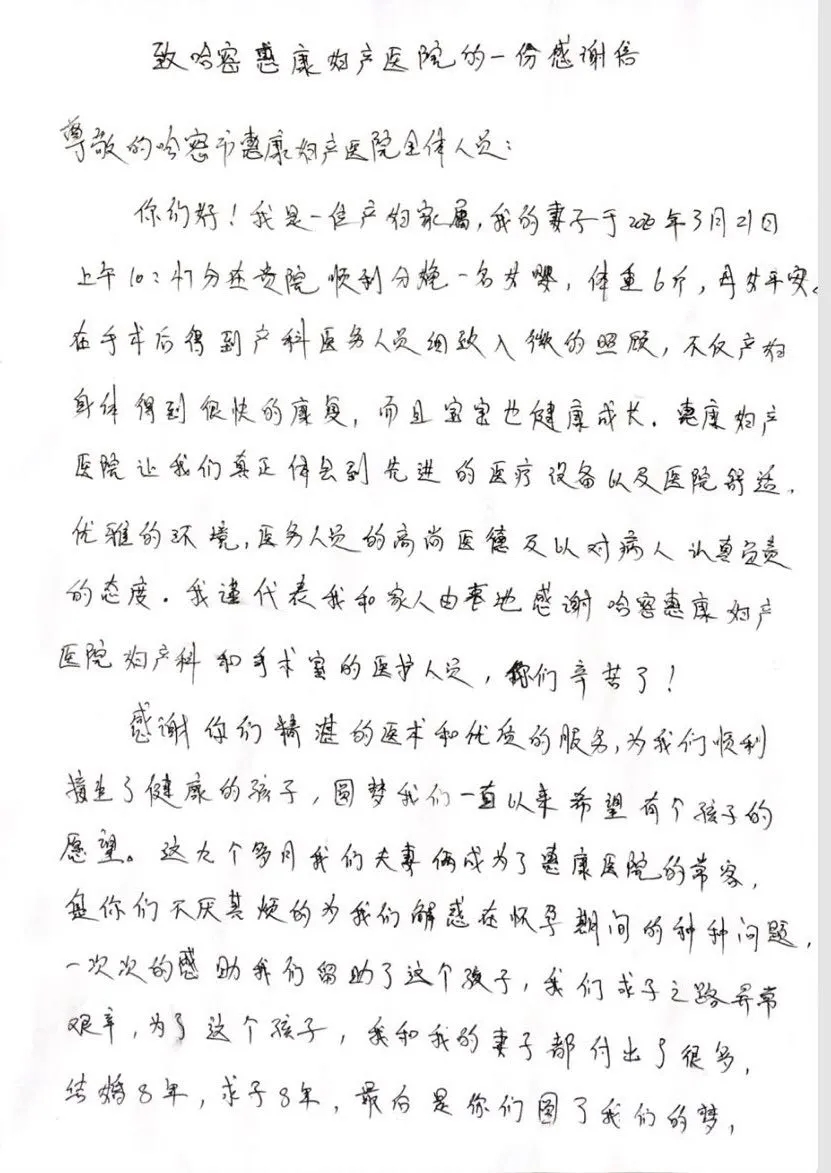 致哈密惠康妇产医院的一份感谢信
尊敬的哈密市惠康妇产医院全体人员:
你们好!我是一位产妇家属,我的妻子于年3月21日
上午10:47分在贵院顺利分娩一名女婴,体重6斤,母女平安。
在手术后得到产科医务人员细致入微的照顾,不仅产妇
身体得到很快的康复,而且宝宝也健康成长.惠康妇产
医院让我们真正体会到先进的医疗设备以及医院舒适、
优雅的环境,医务人员的高尚医德及以对病人认真负责
的态度.我谨代表我和家人由衷地感谢哈密惠康妇产
医院妇产科和手术室的医护人员,你们辛苦了!
感谢你们精湛的医术和优质的服务,为我们顺利
接生了健康的孩子,圆梦我们一直以来希望有个孩子的
愿望。这九个多月我们夫妻俩成为了惠康医院的常客,
是你们不厌其烦的为我们解惑在怀孕期间的种种问题,
一次次的帮助我们留助了这个孩子,我们求子之路异常
艰辛,为了这个孩子,我和我的妻子都付出了很多,
结婚8年,求子8年,最后是你们圆了我们的梦,